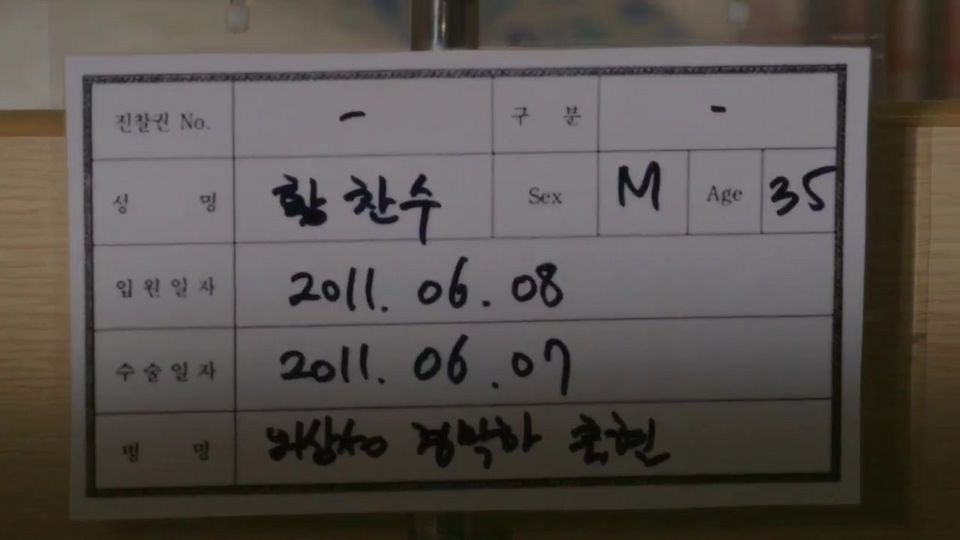 진찰권 No. - 구 분 -
성 명 황찬수 Sex M Age 35
입원일자 2011. 06. 08
수술일자 2011. 06. 07
병 명 외상성 경막하 출현